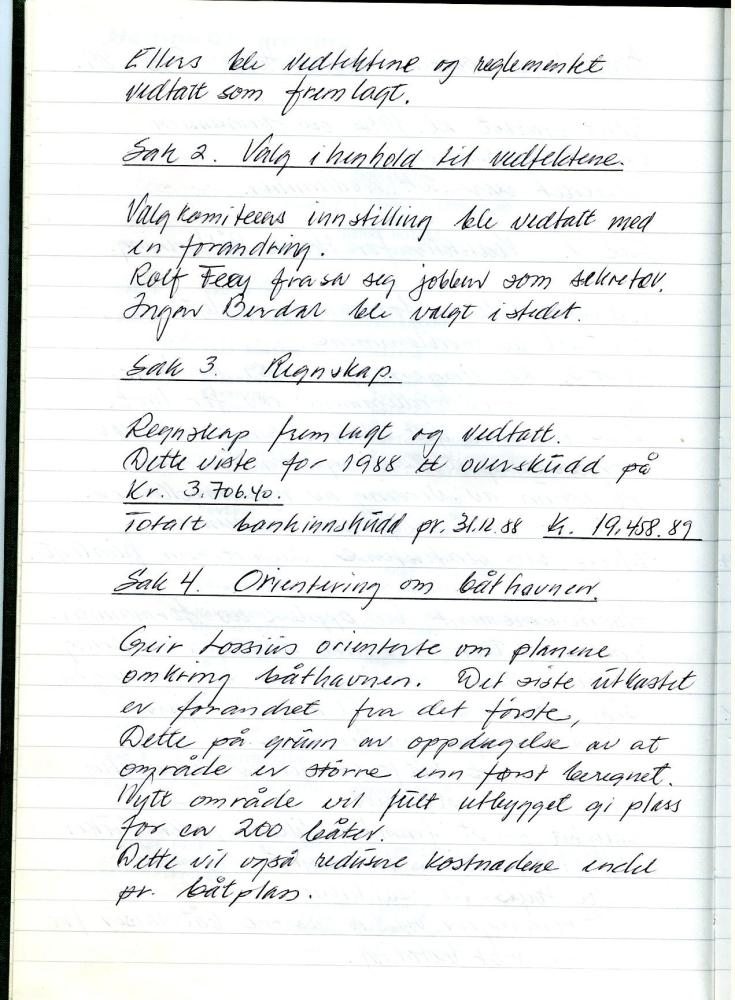 Ellers ble vedtektene og reglementet
vedtatt som fremlagt.
Sak 2. Valg i henhold til vedtektene.
Valgkomiteens innstilling ble vedtatt med
en forandring.
Rolf frasa seg jobben som sekretær.
Ingar Berdal ble valgt i stedet.
Sak 3. Regnskap.
Regnskap fremlagt og vedtatt.
Dette viste for 1988 et overskudd på
Kr. 3.706.40.
Totalt bankinnskudd pr. 31.12.88 K. 19.458.89
Sak 4. Orientering om båthavnen.
Geir Lossius orienterte om planene
omkring båthavnen. Det siste utkastet
er forandret fra det første,
Dette på grunn av oppdagelse av at
område er større enn først beregnet.
Nytt område vil fult utbygget gi plass
for ca 200 båter.
Dette vil også redusere kostnadene endel
pr. båtplass.